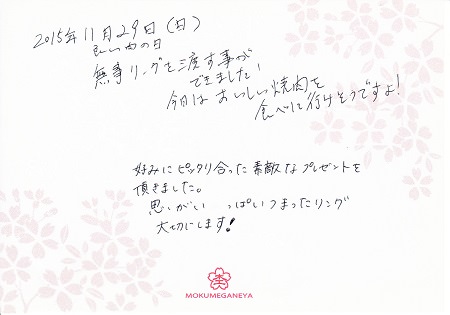 2015年11月29日(日)
良い肉の日
無事リングを渡す事が
できました!
今日は おいしい焼肉を
食べに行けそうですよ!
好みにピッタリ合った素敵なプレゼントを
頂きました。
思いがい っぱいつまったリング
大切にします!
MOKUMEGANEYA